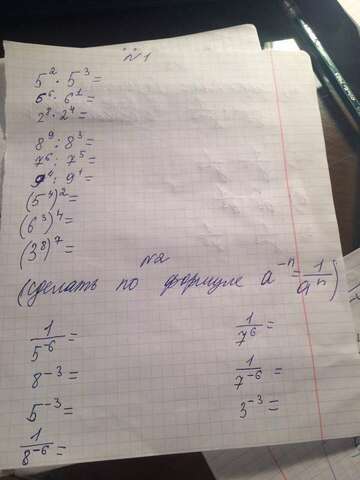 №1
5² · 5³ =
6⁶ · 6¹ =
2⁸ · 2⁴ =
8⁹ : 8³ =
7⁶ : 7⁵ =
9⁴ : 9¹ =
(5⁴)² =
(6³)⁴ =
(3⁸)⁷ =
№2
(сделать по формуле a⁻ⁿ = 1/aⁿ)
1/5⁻⁶ = 1/7⁶ =
8⁻³ = 1/7⁻⁶ =
5⁻³ = 3⁻³ =
1/8⁻⁶ =